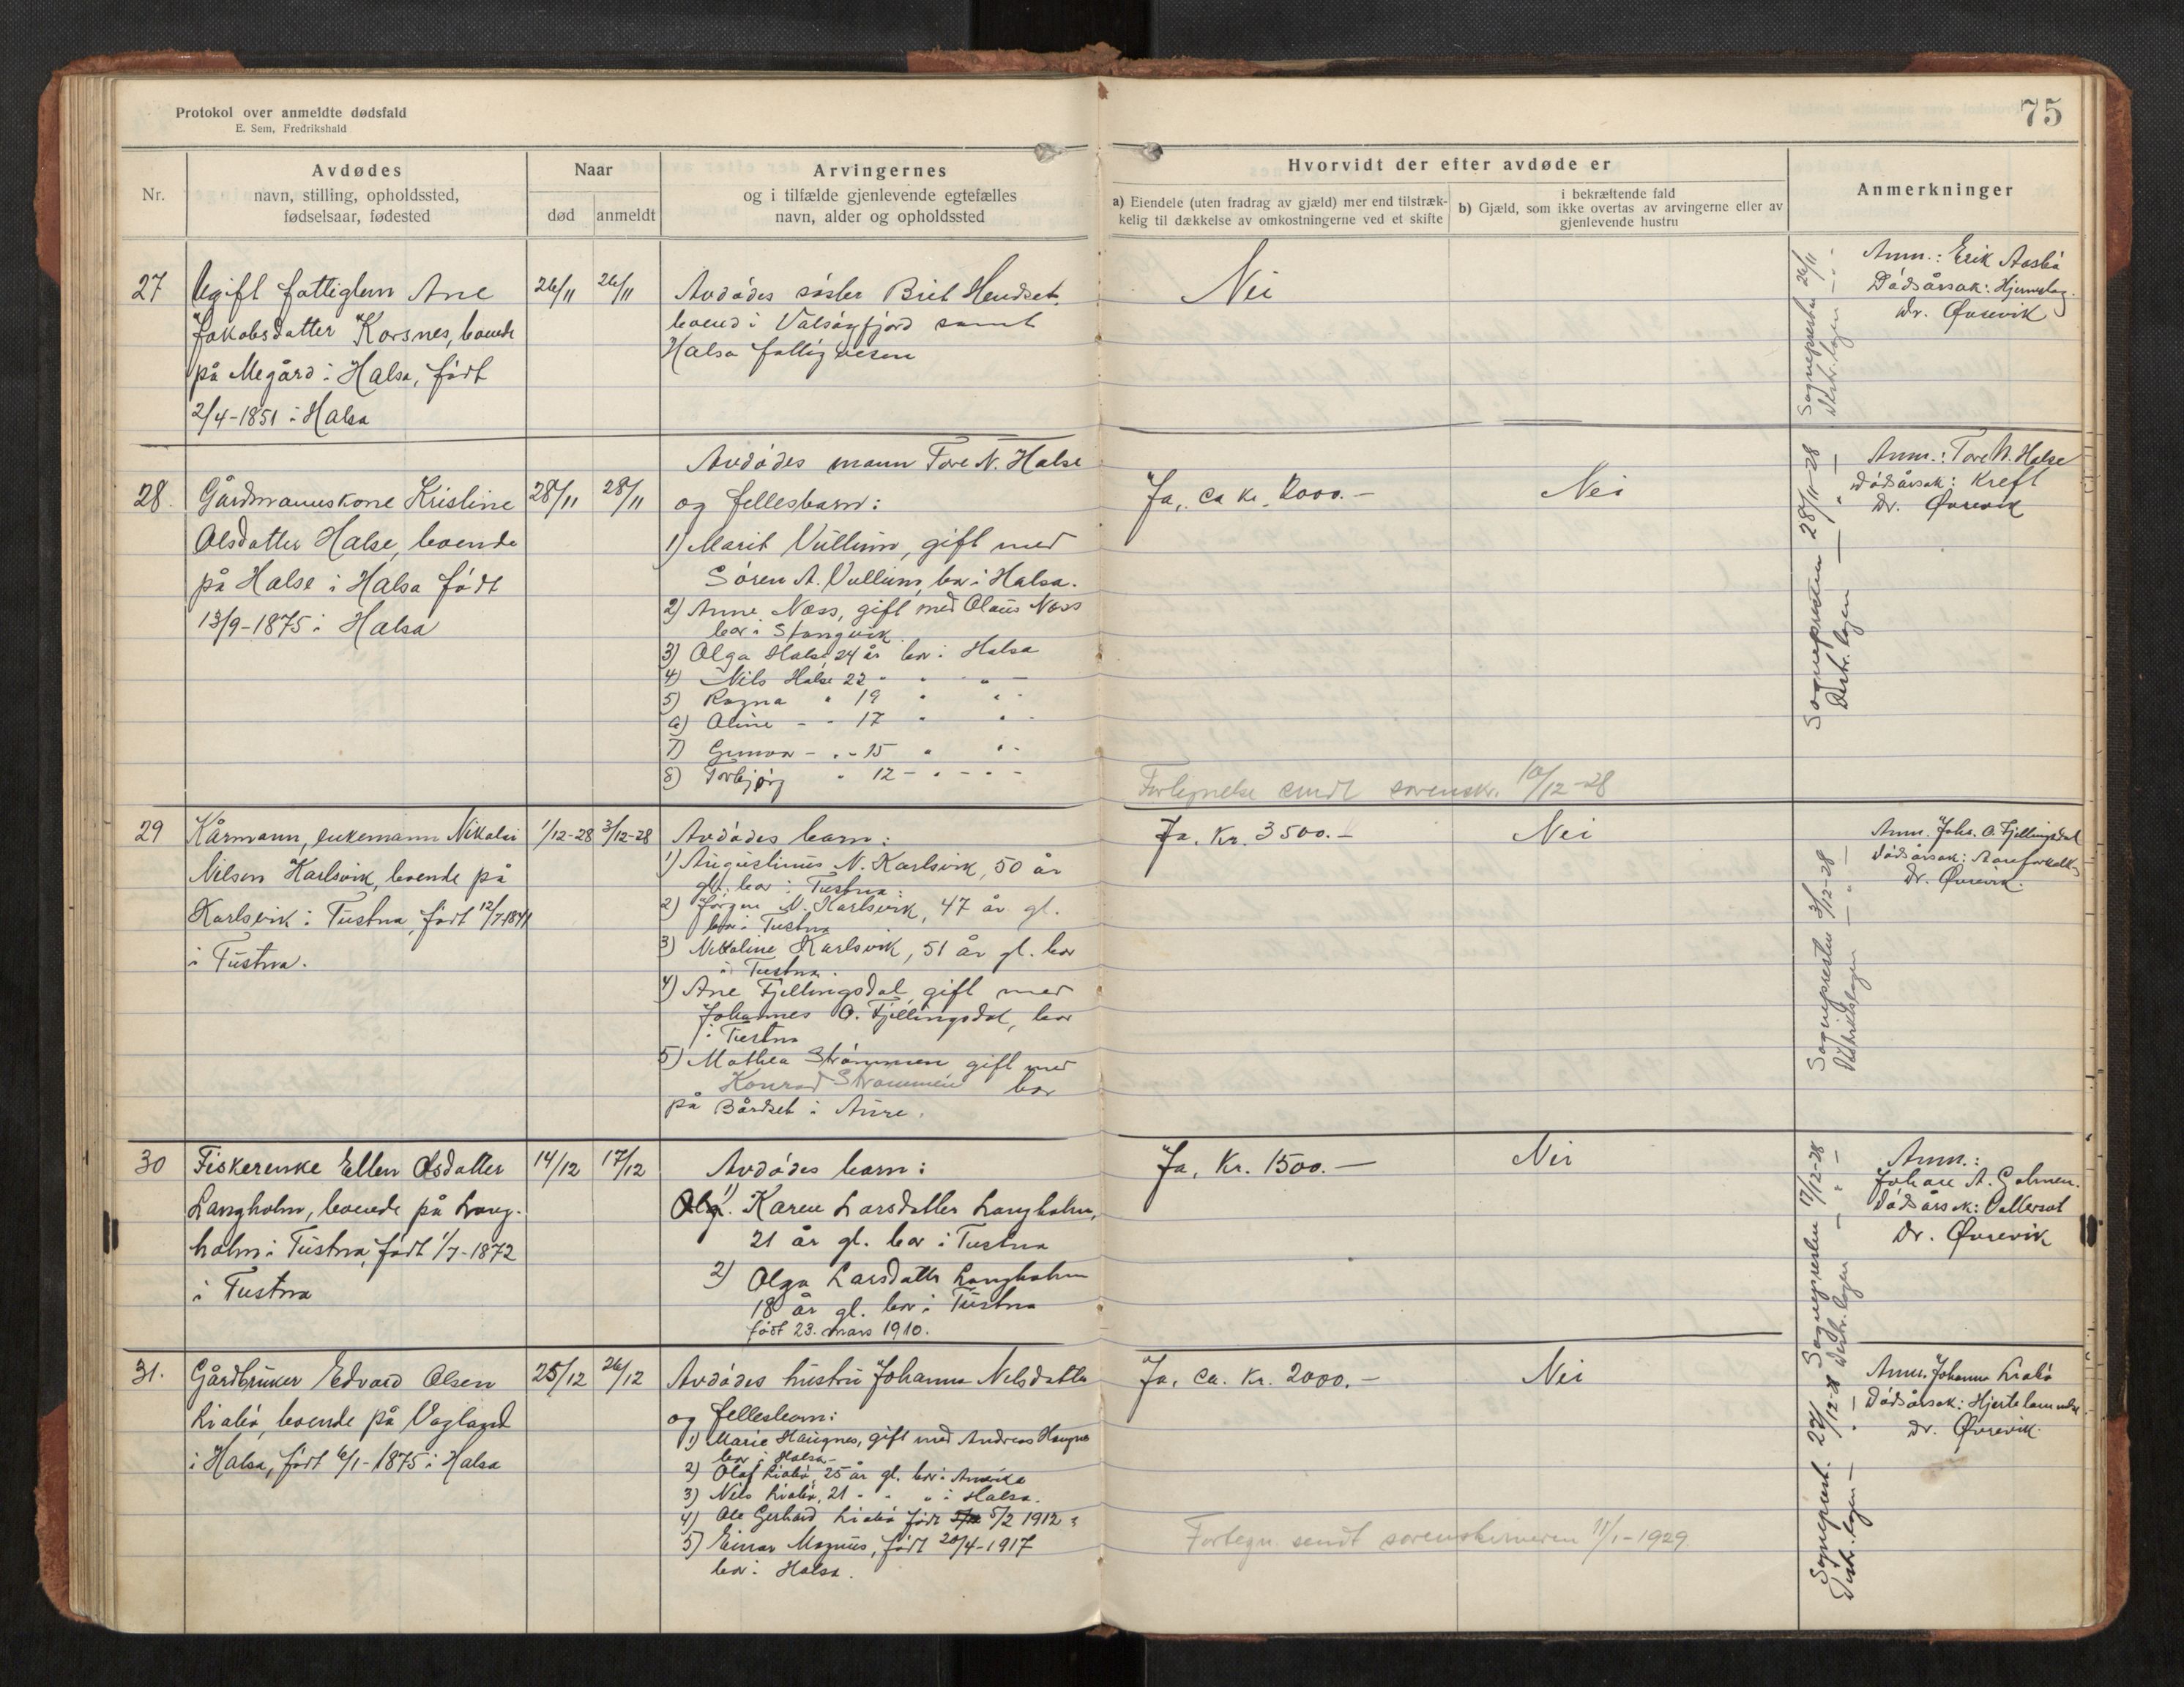 Protokol over anmeldte dødsfald
E. Sem, Fredrikshald
75
Nr.
Avdødes
navn, stilling, opholdssted,
fødselsaar, fødested
Naar
død
anmeldt
Arvingernes
og i tilfælde gjenlevende egtefælles
navn, alder og opholdssted
Hvorvidt der efter avdøde er
a) Eiendele (uten fradrag av gjæld) mer end tilstræk-
kelig til dækkelse av omkostningerne ved et skifte
i bekræftende fald
b) Gjæld, som ikke overtas av arvingerne eller av
gjenlevende hustru
Anmerkninger
27
Ugift fattiglem Ane
Jakobsdatter Korsnes, boende
på Megård i Halsa, født
2/4-1851 i Halsa
26/11
26/11
Avdødes søster Brit Hendset
boend i Valsøyfjord samt
Halsa fattigvesen
Nei
Sognepresten 26/11
Distr.legen — " -
Anm.: Erik Aasbø
Dødsårsak: Hjerneslag.
Dr. Øvrevik
28.
Gårdmannskone Kristine
Olsdatter Halse, boende
på Halse i Halsa født
13/9-1875 i Halsa
28/11
28/11
Avdødes mann Tore N. Halse
og fellesbarn:
1) Marit Vullum, gift med
Søren A. Vullum, bor i Halsa.
2) Anne Næss, gift med Olaus Næss
bor i Stangvik.
3) Olga Halse 24 år bor i Halsa
4) Nils Halse 22 " " " —
5) Ragna " 19 " " -
6) Aline - " 17 " " -
7) Gunvor - " - 15 " " -
8) Torbjørg " 12 - " - " -
Ja, ca kr. 2000.-
Nei
Fortegnelse sendt sorenskr. 10/12-28
Sognepresten 28/11-28
Distr.legen — " —
Anm.: Tore N. Halse
Dødsårsak: Kreft
Dr. Øvrevik
29
Kårmann, enkemann Nikolai
Nilsen Karlsvik, boende på
Karlsvik i Tustna, født 12/7-1841
i Tustna.
1/12-28
3/12-28
Avdødes barn:
1) Augustinus N. Karlsvik, 50 år
gl. bor i Tustna.
2) Jørgen N. Karlsvik, 47 år gl.
bor i Tustna
3) Nikoline Karlsvik, 51 år gl. bor
i Tustna.
4) Ane Fjellingsdal gift med
Johannes O. Fjellingsdal, bor
i Tustna
5) Mathea Strømmen gift med
Konrad Strømmen bor
på Bårdset i Aure.
Ja. Kr. 3500.-
Nei
Sognepresten 3/12-28
Distriktslegen — " —
Anm. Johs. O. Fjellingsdal
Dødsårsak: Aareforkalkn
Dr. Øvrevik.
30
Fiskerenke Ellen Olsdatter
Langholm, boende på Lang-
holm i Tustna, født 1/7-1872
i Tustna
14/12
17/12
Avdødes barn:
1) Karen Larsdatter Langholm,
21 år gl. bor i Tustna
2) Olga Larsdatter Langholm
18 år gl. bor i Tustna
født 23. mars 1910.
Ja, Kr. 1500.—
Nei
Sognepresten 17/12-28
Distr.legen — " —
Anm.:
Johan A. Golmen.
Dødsårsak:
Dr. Øvrevik
31.
Gårdbruker Edvard Olsen
Liabø, boende på Vagland
i Halsa, født 6/1-1875 i Halsa
25/12
26/12
Avdødes hustru Johanna Nilsdatter
og fellesbarn:
1) Marie Haugnes, gift med Andreas Haugnes
bor i Halsa-
2) Olaf Liabø, 25 år gl. bor i Amerika
3) Nils Liabø, 21 " - " i Halsa.
4) Ole Gerhard Liabø født 5/2 1912
5) Einar Magnus, født 20/4-1917
bor i Halsa.
Ja, ca. Kr. 2000.-
Nei
Fortegn. sendt sorenskriveren 11/1-1929
Sogneprest. 27/12-28
Distr.legen — " —
Anm. Johanna Liabø
Dødsårsak: Hjertelammelse.
Dr. Øvrevik.